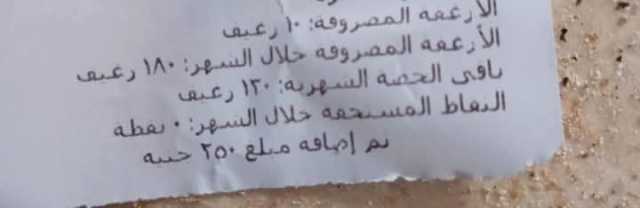 الأرغفة المصروفة: ١٠ رغيف
الأرغفة المصروفة خلال الشهر: ١٨٠ رغيف
باقى الحصة الشهرية: ١٢٠ رغيف
النقاط المستحقة خلال الشهر: ٠ نقطة
تم إضافة مبلغ ٢٥٠ جنيه